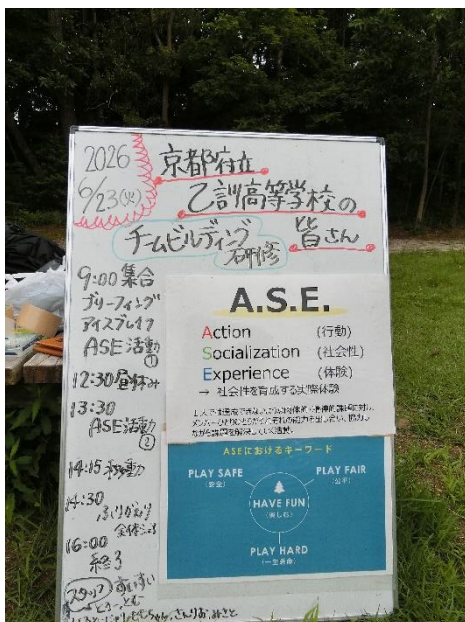 2026
6/23(火)
京都府立
乙訓高等学校の
皆さん
チームビルディング
研修
9:00 集合
ブリーフィング
アイスブレイク
ASE活動
①
12:30 昼休み
13:30
ASE活動
②
14:15 移動
14:30
ふりがえり
全体シェア
16:00
終了
スタッフ
A.S.E.
Action (行動)
Socialization (社会性)
Experience (体験)
→ 社会性を育成する実際体験
ASEにおけるキーワード
PLAY SAFE
(安全)
PLAY FAIR
(公平)
HAVE FUN
(楽しむ)
PLAY HARD
(一生懸命)